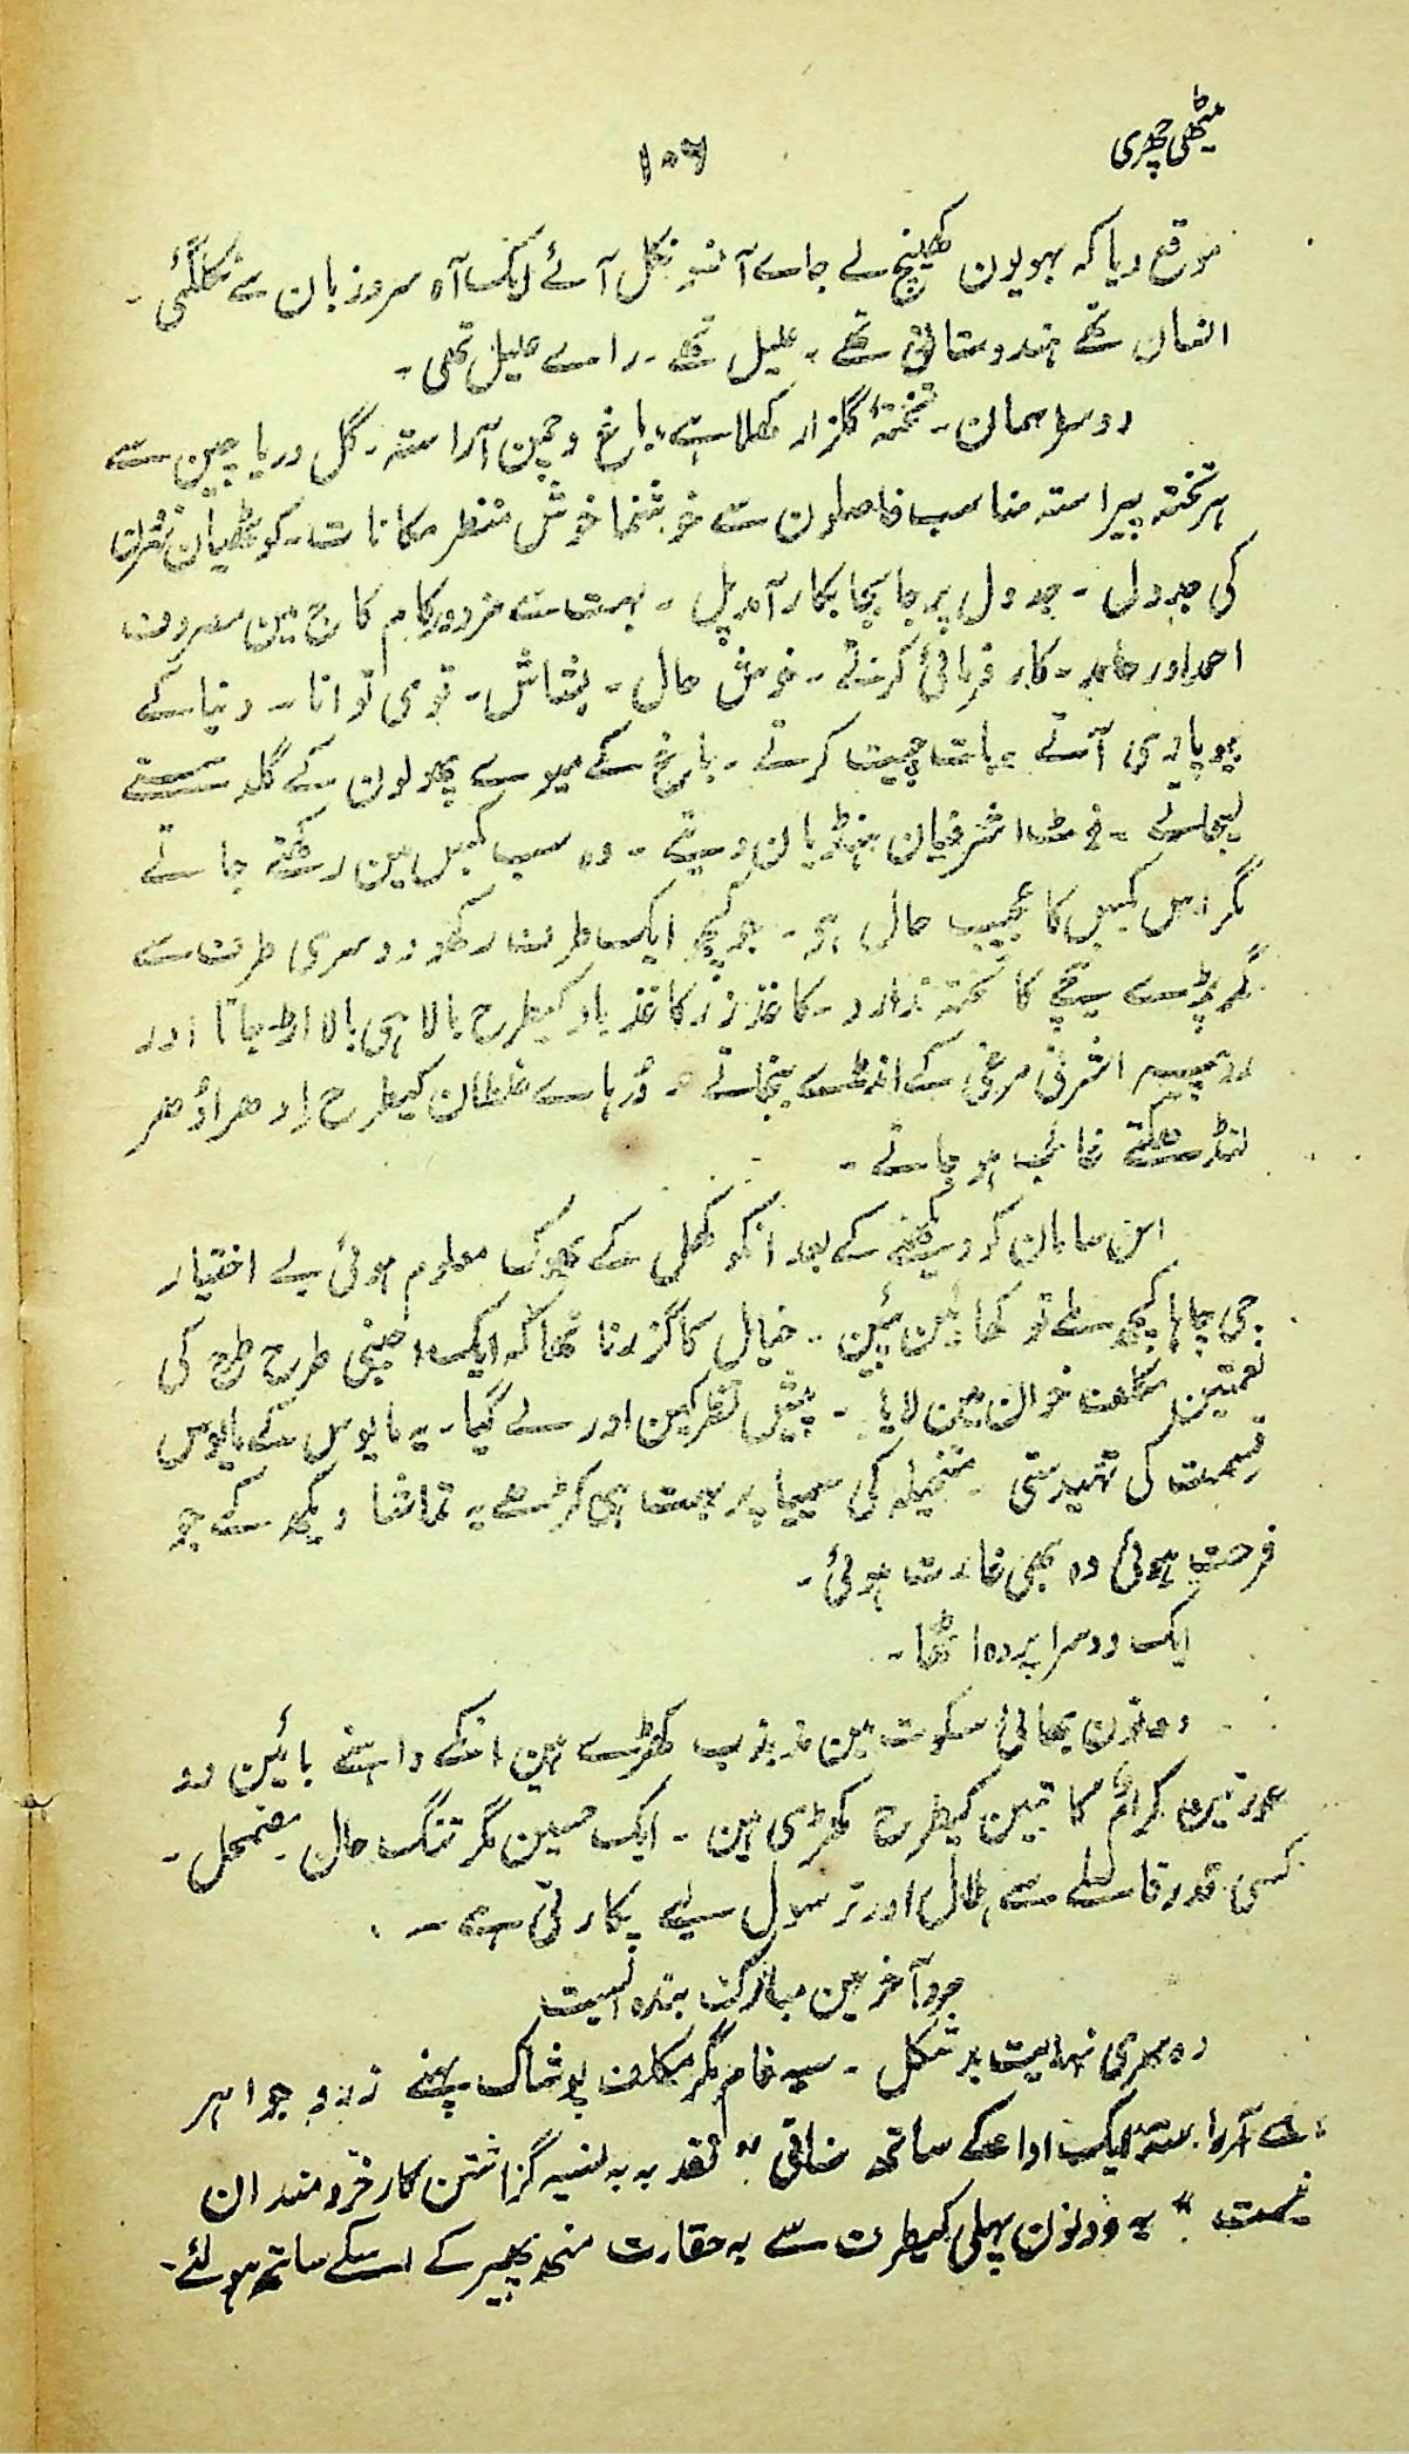 میٹھی چھری
۱۰۶
موقع دیا کہ بہویون کھینچ لے جاے آنسو نکل آئے ایک آہ سرد زبان سے نکلگئی۔
انسان تھے ہندوستانی تھے۔ علیل تھے۔ راے علیل تھی۔
دوسرا سمان۔ تختۂ گلزار کھلا ہے، باغ و چمن آراستہ۔ گل و ریاحین سے
ہر تختہ پیراستہ مناسب فاصلون سے خوشنما خوش منظر مکانات۔ کوٹھیان نہرون
کی جدول۔ جدول پر جا بجا بکار آمد پل۔ بہت سے مزدور کام کاج مین مصروف
احمد اور حامد۔ کار فرمائی کرتے۔ خوش حال۔ بشاش۔ قوی توانا۔ دنیا کے
بیوپاری آتے۔ بات چیت کرتے۔ باغ کے میوے پھولون کے گلدستے
لیجاتے۔ نوٹ اشرفیان ہنڈیان دیتے۔ وہ سب کمبل مین رکھتے جاتے
مگر اس کمبل کا عجیب حال ہو۔ جو کچھ ایک طرف رکھو دوسری طرف سے
گر پڑے نیچے کا تختہ ندارد۔ کاغذ زر کاغذ باد کیطرح بالا ہی بالا اڑ جاتا اور
روپیہ اشرفی مرغی کے انڈے بنجاتے۔ دُرہاے غلطان کیطرح اِدھر اُدھر
لنڈھکتے غائب ہو جاتے۔
اس سامان کو دیکھنے کے بعد آنکھ کھل کے بھوک معلوم ہوئی بے اختیار
جی چاہا کچھ ملے تو کھائین پئین۔ خیال کا گزرنا تھا کہ ایک اجنبی طرح طرح کی
نعمتین مکلف خوان مین لایا۔ پیش نظر کین اور لے گیا۔ یہ مایوس کے مایوس
قسمت کی تہیدستی۔ متخیلہ کی سیمیا پر بہت ہی کڑھے یہ تماشا دیکھ کے جو
فرحت ہوئی وہ بھی غارت ہوئی۔
ایک دوسرا پردہ اٹھا۔
دونون بھائی سکوت مین مذبذب کھڑے ہین انکے داہنے بائین دو
عورتین کراماً کاتبین کیطرح کھڑی ہین۔ ایک حسین مگر تنگ حال۔ مضمحل۔
کسی قدر فاصلے سے ہلال اور ترسول لیے پکارتی ہے۔
جرد آخر بین مبارک بندہ ایست
دوسری نہایت بد شکل۔ سیہ فام مگر مکلف پوشاک پہنے زر و جواہر
سے آراستہ ایک ادا کے ساتھ "نقد بہ بہ نسیہ گزاشتن کار خردمندان
نیست" یہ دونون پہلی کیطرف سے بہ حقارت منھ پھیر کے اسکے ساتھ ہولئے۔